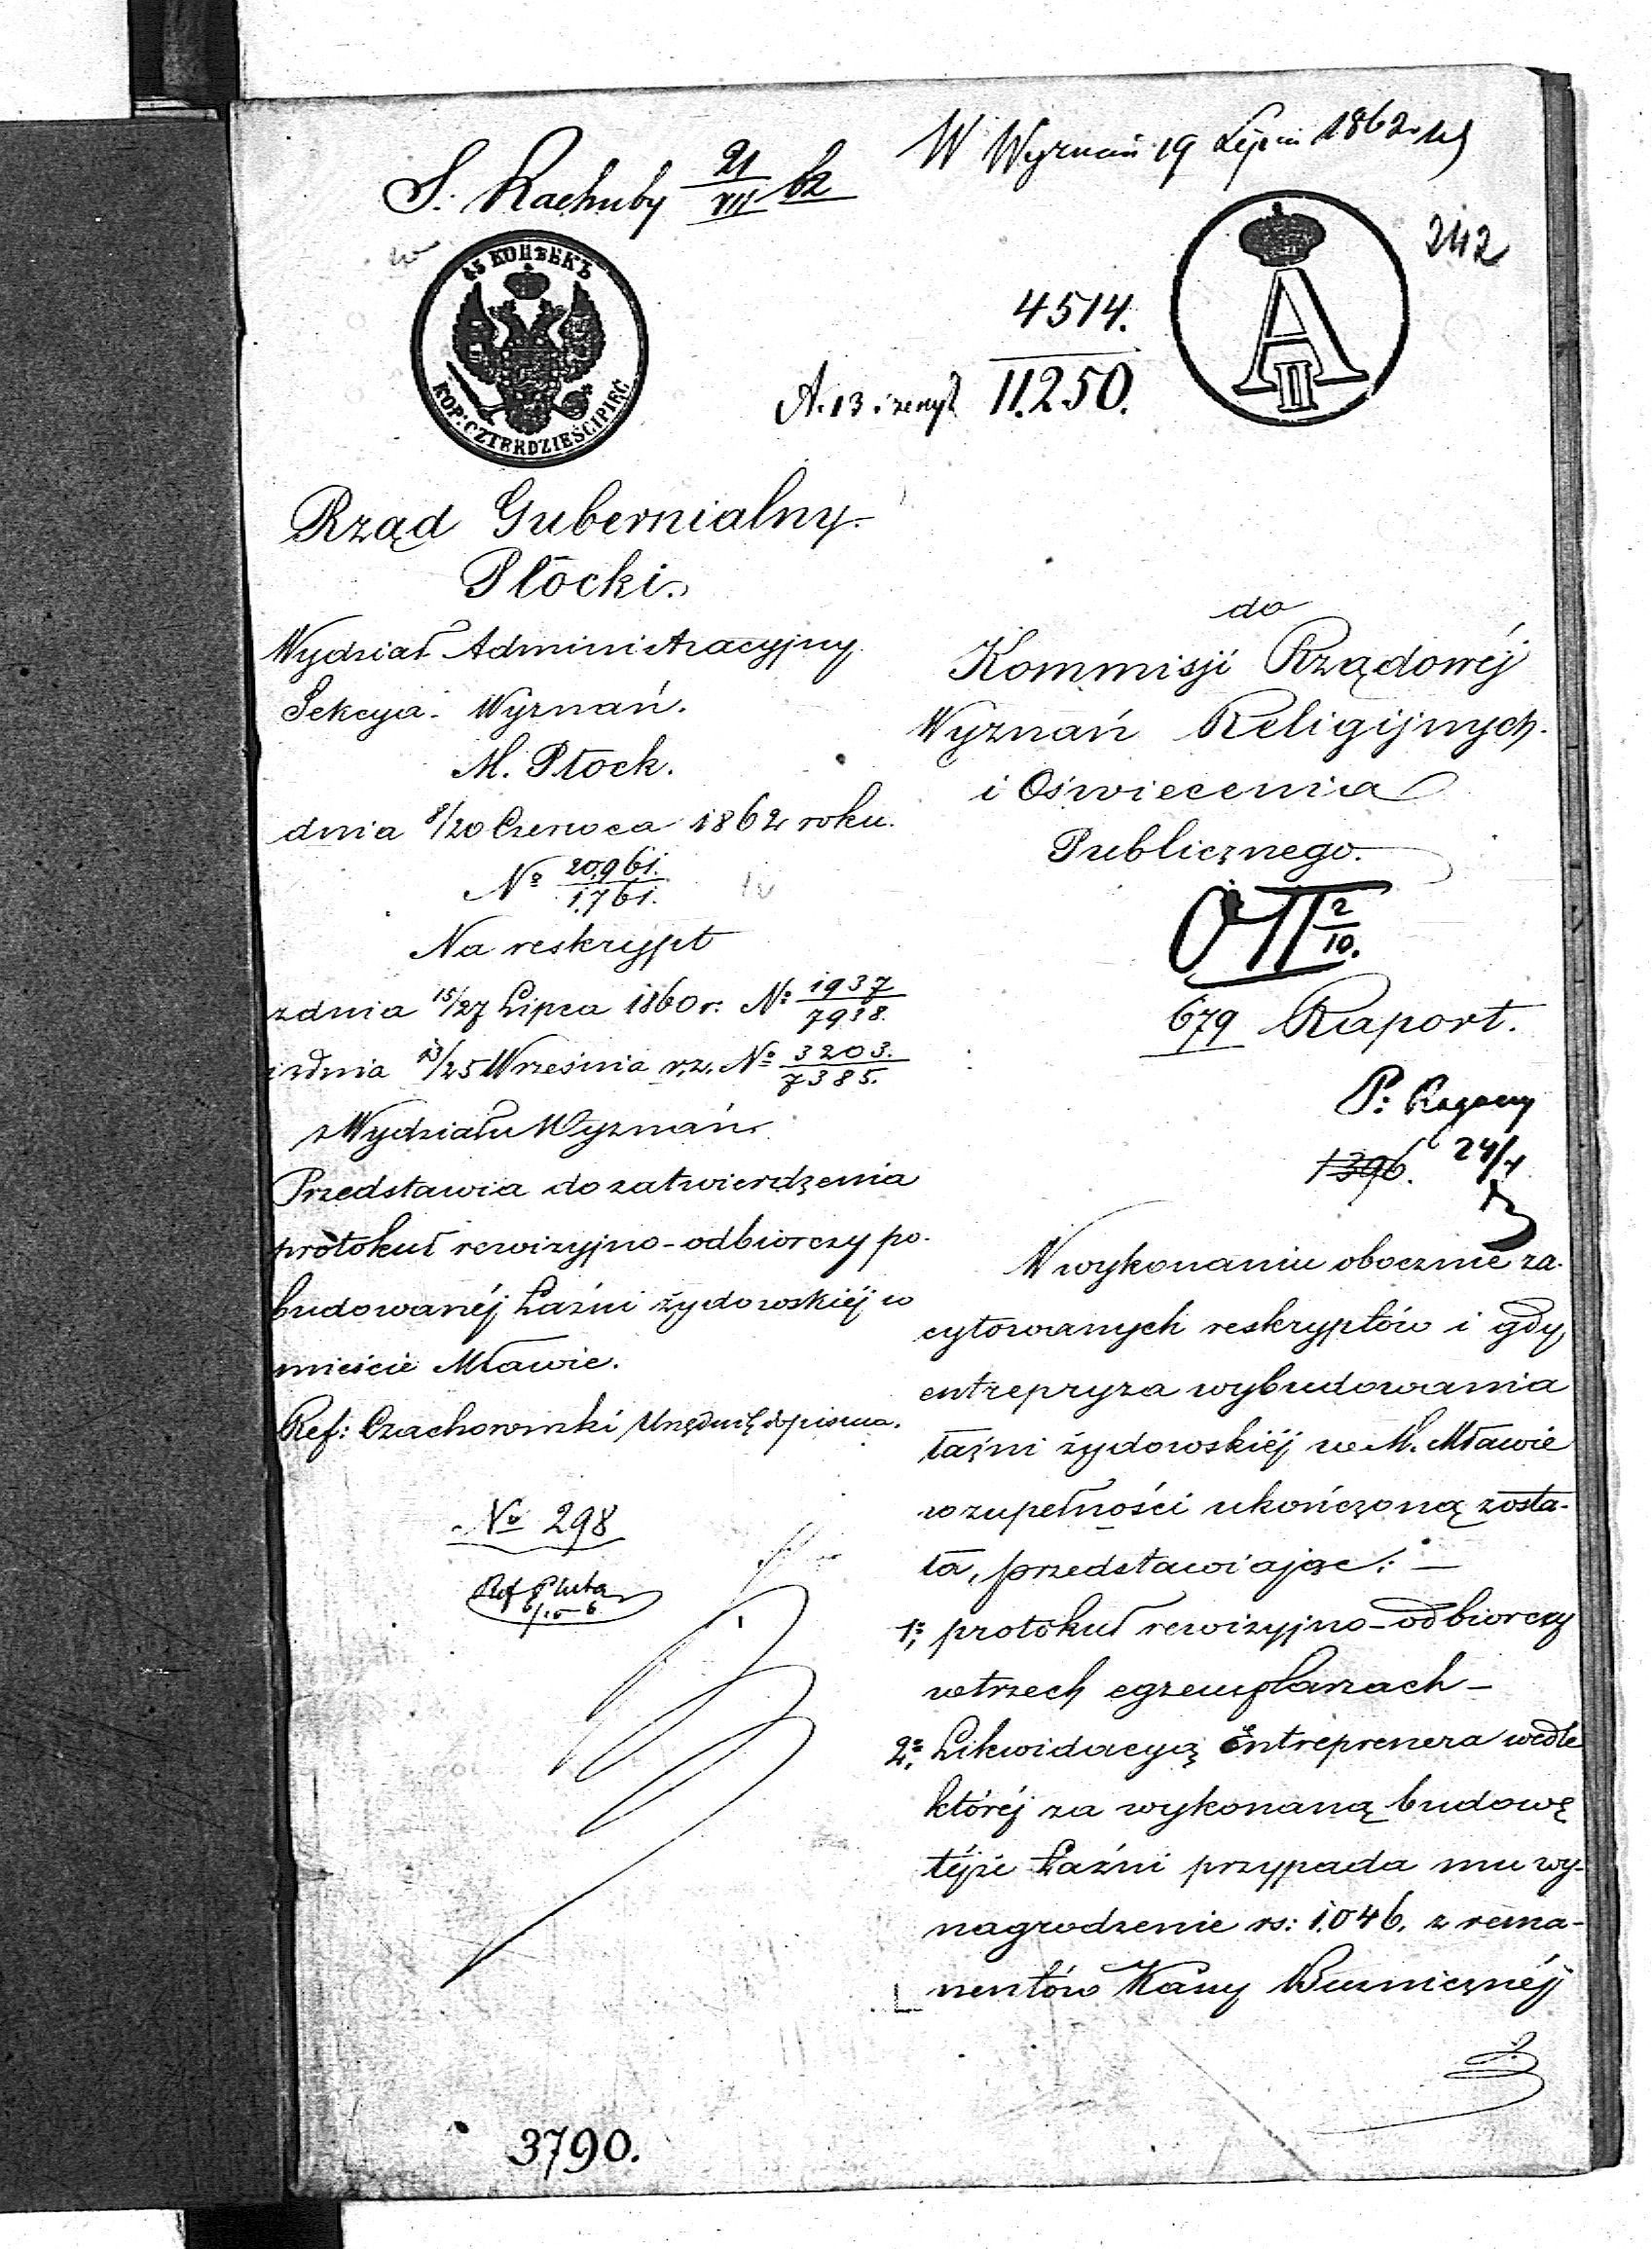 W Wyznań 19 Lipca 1862 r
S. Rachuby 21/VII 62
242
45 КОПѢЕКЪ
KOP: CZTERDZIEŚCI PIĘĆ
A II
4514.
11.250.
A. 13
Rząd Gubernialny
Płocki.
Wydział Administracyjny
Sekcya Wyznań.
M. Płock.
dnia 8/20 Czerwca 1862 roku.
No 20,961./1,761.
Na reskrypt
z dnia 15/27 Lipca 1860 r. No 1937/7938.
i z dnia 13/25 Września r.z. No 3203./7385.
z Wydziału Wyznań
Przedstawia do zatwierdzenia
protokuł rewizyjno-odbiorczy po-
budowanéj Łaźni żydowskiéj w
mieście Mławie.
Ref: Czachowski Urzędnik do pisma.
No 298
3790.
do
Kommisji Rządowéj
Wyznań Religijnych
i Oświecenia
Publicznego.
2/10.
679 Raport.
1396. 24/
W wykonaniu obocznie za-
cytowanych reskryptów i gdy
entrepryza wybudowania
łaźni żydowskiéj w M. Mławie
w zupełności ukończoną zosta-
ła, przedstawiając: —
1o; protokuł rewizyjno-odbiorczy
w trzech egzemplarzach —
2o; Likwidacyą Entreprenera wedle
któréj za wykonaną budowę
téjże Łaźni przypada mu wy-
nagrodzenie rs: 1.046. z rema-
nentów Kassy Bużnicznéj